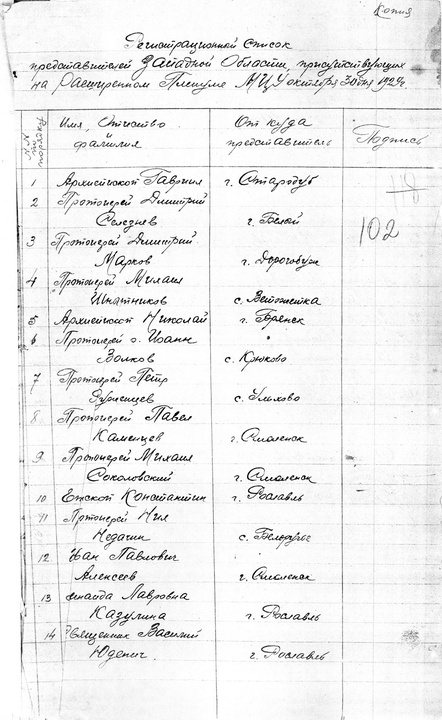 Копия
Регистрационной Список
представителей Западной Области, присутствующих
на Расширенном Пленуме МЦУ октября 30 дня 1929г.
№№ по порядку
Имя, Отчество фамилия
От куда представитель
Подпись
1 Архиепископ Гавриил г. Стародуб
2 Протоиерей Димитрий
Селезнев г. Белой
118
102
3 Протоиерей Димитрий
Марков г. Дорогобуж
4 Протоиерей Михаил
с.
5 Архиепископ Николай г. Брянск
6 Протоиерей о. Иоанн
Волков с. Крюково
7 Протоиерей Петр
с.
8 Протоиерей Павел
Каменцев г. Смоленск
9 Протоиерей Михаил
Соколовский г. Смоленск
10 Епископ Константин г. Рославль
11 Протоиерей Нил
Недачин с.
12 Иван Павлович
Алексеев г. Смоленск
13 Лавровна
Казулина г. Рославль
14 Священник Василий
Юденич. г. Рославль